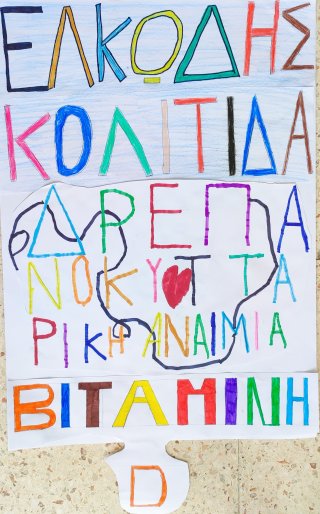 ΕΛΚΩΔΗΣ
ΚΟΛΙΤΙΔΑ
ΔΡΕΠΑ
ΝΟΚΥΤΤΑ
ΡΙΚΗ ΑΝΑΙΜΙΑ
ΒΙΤΑΜΙΝΗ
D